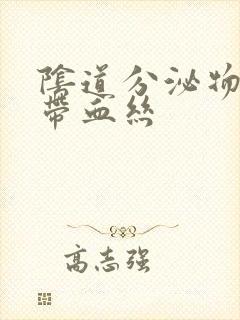 陰道分泌物
帶血絲
高志强